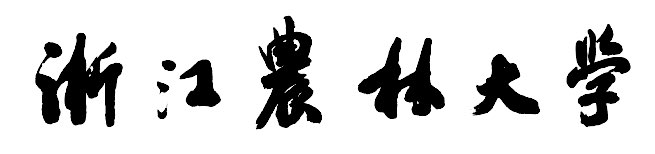 浙江農林大学